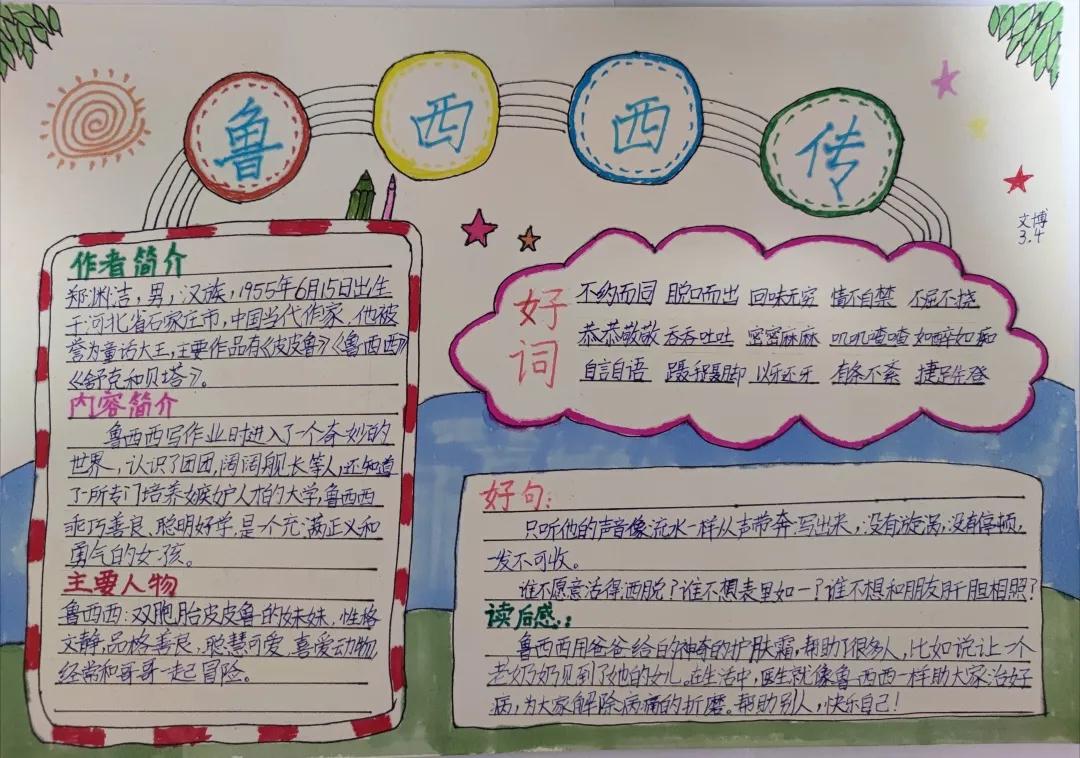 鲁西西传
文博
3.4
作者简介
郑渊洁，男，汉族，1955年6月15日出生
于河北省石家庄市，中国当代作家，他被
誉为童话大王，主要作品有《皮皮鲁》《鲁西西》
《舒克和贝塔》。
内容简介
鲁西西写作业时进入了一个奇妙的
世界，认识了团团，阔阔舰长等人，还知道
了所专门培养嫉妒人才的大学，鲁西西
乖巧善良、聪明好学，是一个充满正义和
勇气的女孩。
主要人物
鲁西西：双胞胎皮皮鲁的妹妹，性格
文静，品格善良，聪慧可爱，喜爱动物，
经常和哥哥一起冒险。
好词
不约而同 脱口而出 回味无穷 情不自禁 不屈不挠
恭恭敬敬 吞吞吐吐 密密麻麻 叽叽喳喳 如醉如痴
自言自语 蹑手蹑脚 以牙还牙 有条不紊 捷足先登
好句：
只听他的声音像流水一样从声带奔泻出来，没有漩涡，没有停顿，
一发不可收。
谁不愿意活得洒脱？谁不想表里如一？谁不想和朋友肝胆相照？
读后感：
鲁西西用爸爸给的神奇的护肤霜，帮助了很多人，比如说让一个
老奶奶见到了她的女儿。在生活中，医生就像鲁西西一样助大家治好
病，为大家解除病痛的折磨。帮助别人，快乐自己！